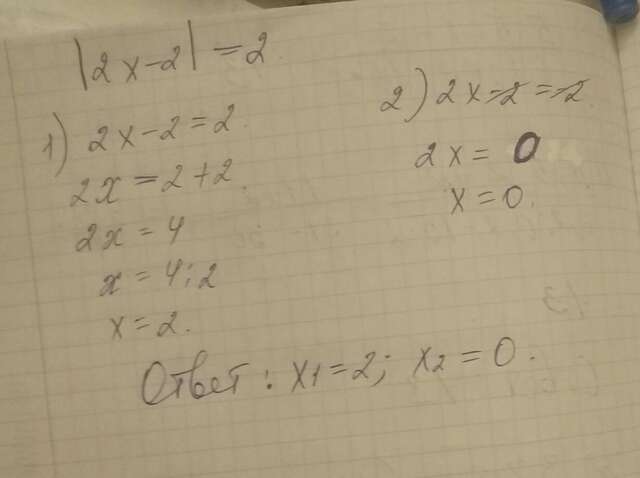 |2x-2|=2.
1) 2x-2=2.
2x=2+2.
2x=4
x=4:2
x=2.
2) 2x-2=-2.
2x=0
x=0.
Ответ: x1=2; x2=0.